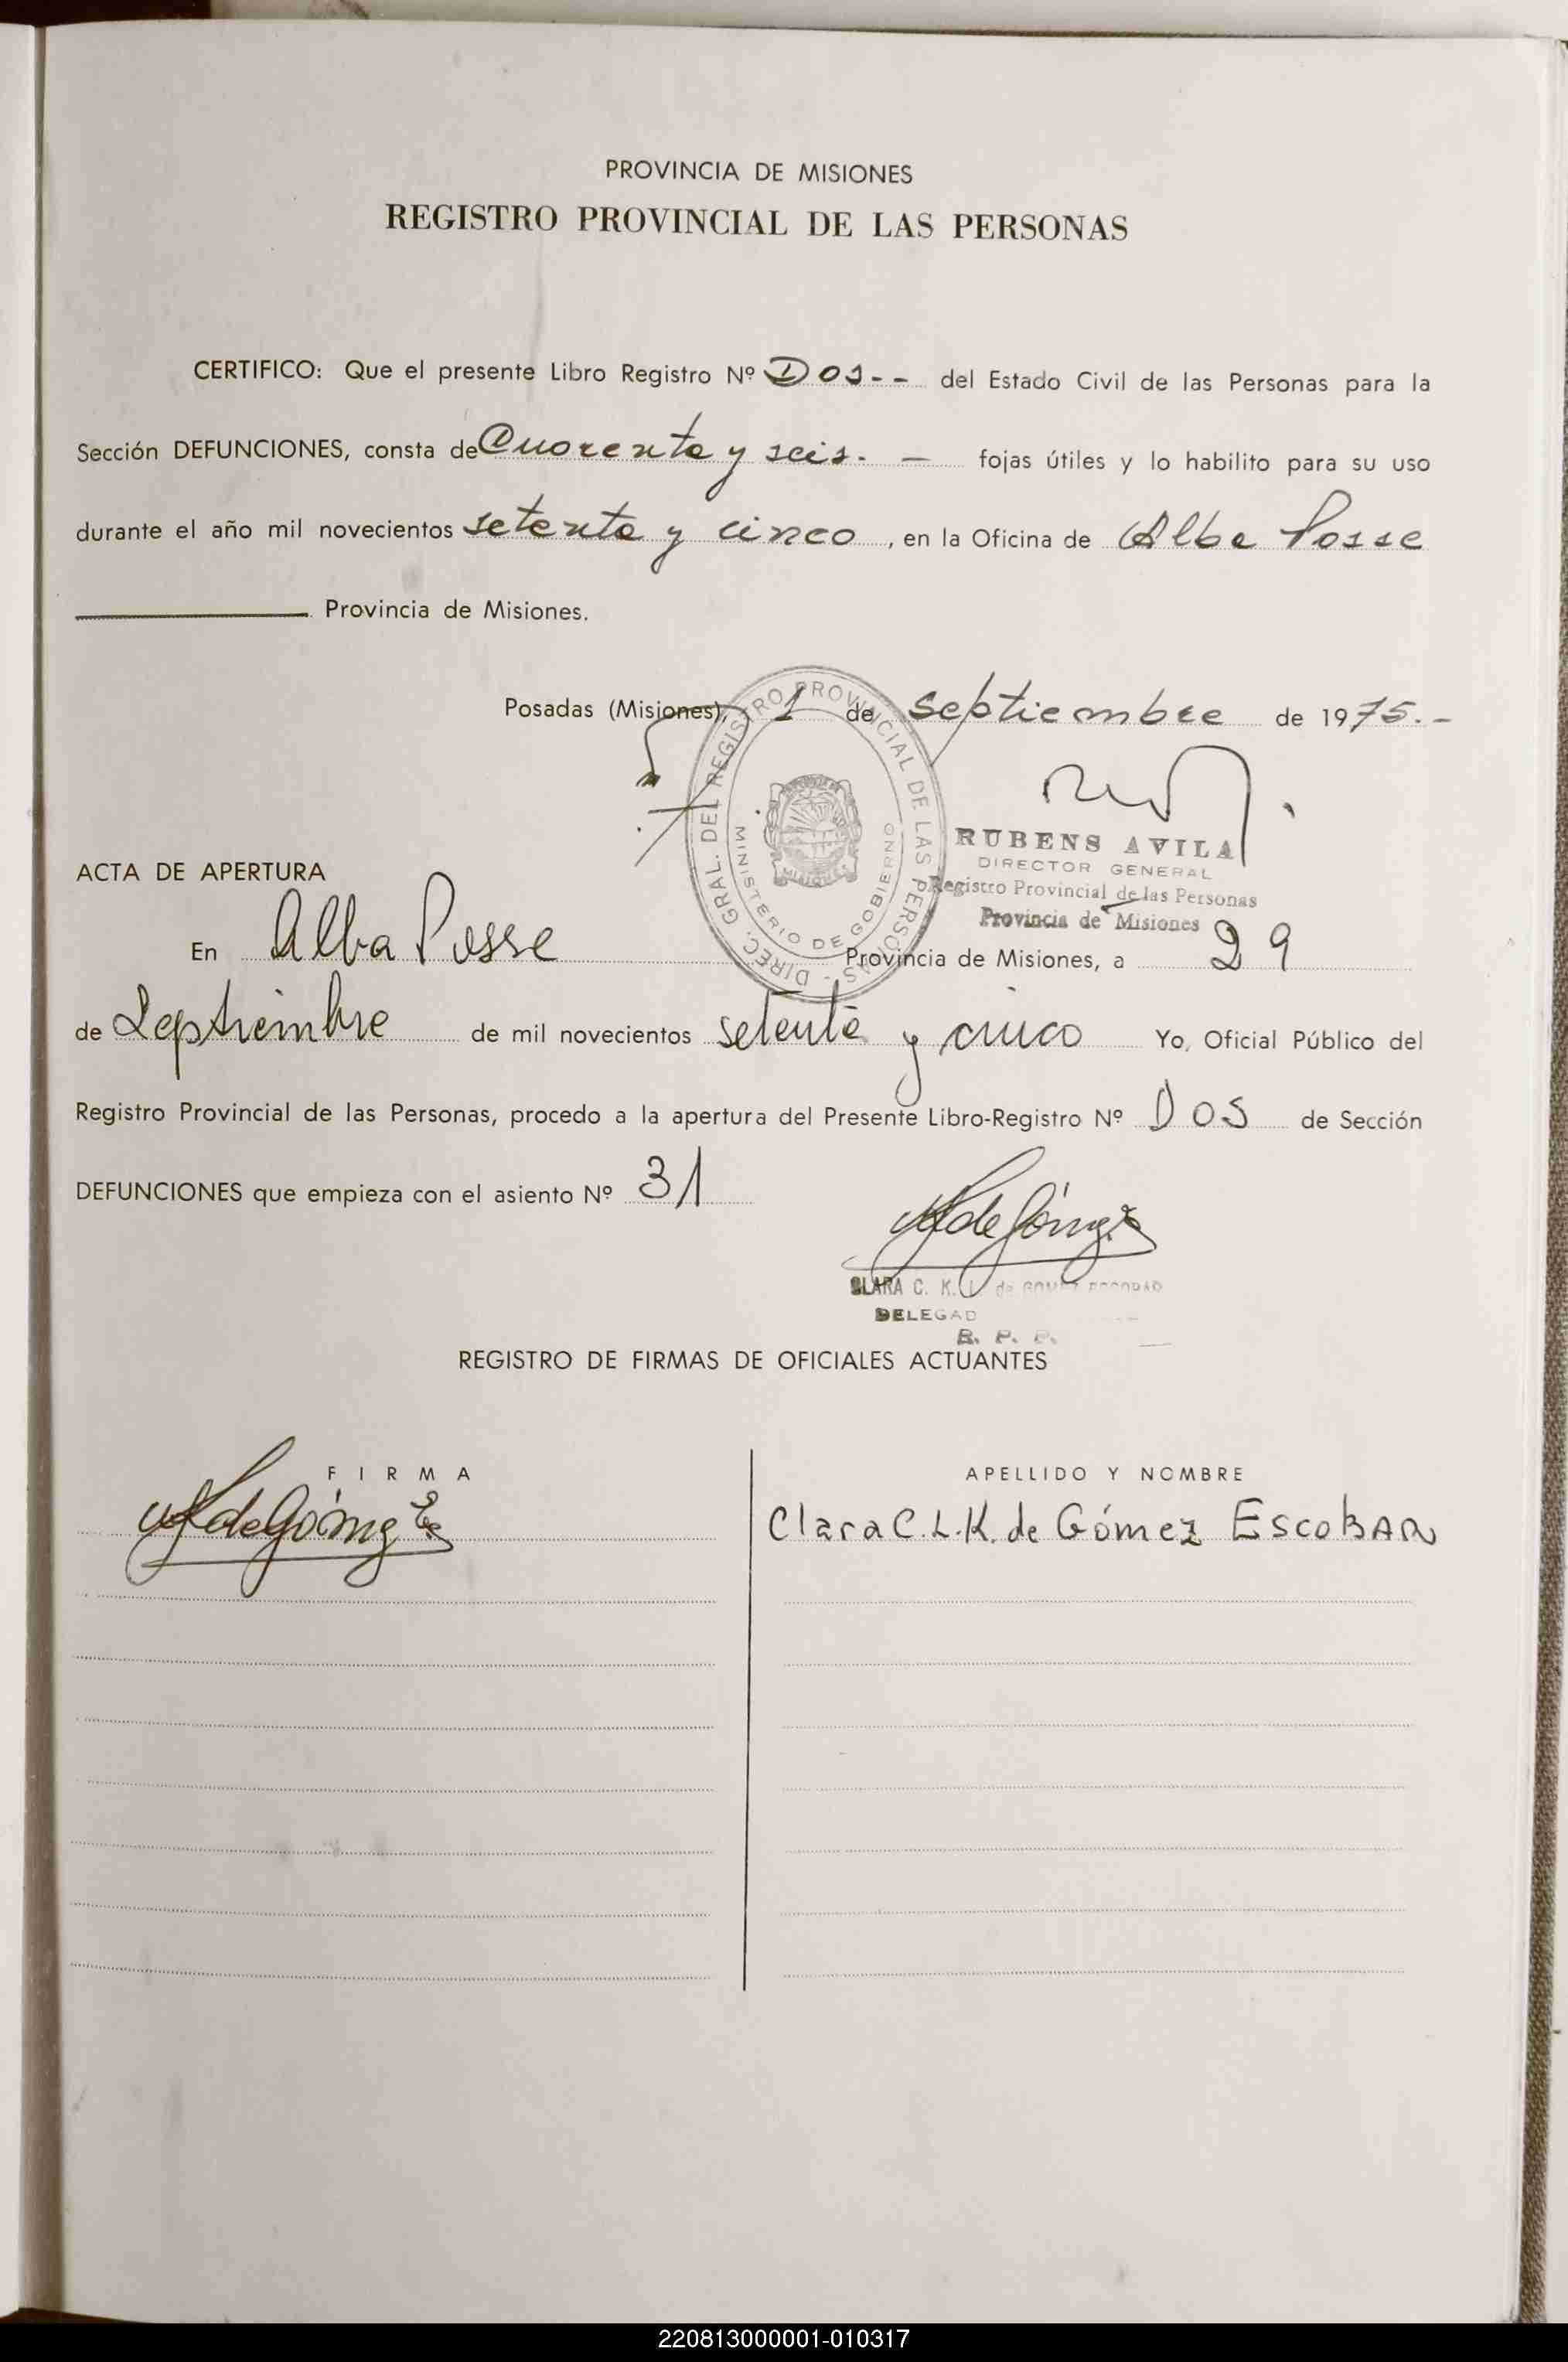 PROVINCIA DE MISIONES
REGISTRO PROVINCIAL DE LAS PERSONAS
CERTIFICO: Que el presente Libro Registro Nº Dos.-- del Estado Civil de las Personas para la
Sección DEFUNCIONES, consta de Cuarenta y seis. — fojas útiles y lo habilito para su uso
durante el año mil novecientos setenta y cinco, en la Oficina de Alba Posse
Provincia de Misiones.
Posadas (Misiones), 1 de septiembre de 1975.-
DIREC. GRAL. DEL REGISTRO PROVINCIAL DE LAS PERSONAS -
MINISTERIO DE GOBIERNO
RUBENS AVILA
DIRECTOR GENERAL
Registro Provincial de las Personas
Provincia de Misiones
ACTA DE APERTURA
En Alba Posse Provincia de Misiones, a 29
de Septiembre de mil novecientos setenta y cinco Yo, Oficial Público del
Registro Provincial de las Personas, procedo a la apertura del Presente Libro-Registro Nº DOS de Sección
DEFUNCIONES que empieza con el asiento Nº 31
CLARA C. K. L. de GOMEZ ESCOBAR
DELEGAD
R. P. P.
REGISTRO DE FIRMAS DE OFICIALES ACTUANTES
FIRMA
APELLIDO Y NOMBRE
Clara C. L. K. de Gómez EscoBAR
220813000001-010317